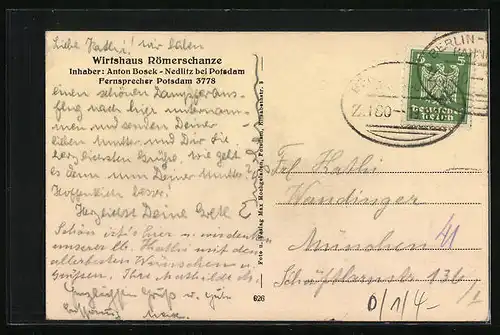 Liebe Kathi! Wir haben
Wirtshaus Römerschanze
Inhaber: Anton Bosek - Nedlitz bei Potsdam
Fernsprecher Potsdam 3778
einen schönen Dampferaus-
flug nach hier unternom-
men und senden Deiner
lieben Mutter und Dir die
herzlichsten Grüße, wie geht
es denn nun Deiner Mutter?
Hoffentlich besser!
Herzlichst Deine Gretl
Schön ist's hier u.
unsere lb. Kathi mit den
allerbesten Wünschen u.
Grüssen. Ihre Mathilde
Gruß u. gute
Foto u. Verlag Max Potsdam,
626
BERLIN-
Z.180
5 5
Deutsches
Reich
Frl. Kathi
Wandinger
München
41
136/1
D/1/4-